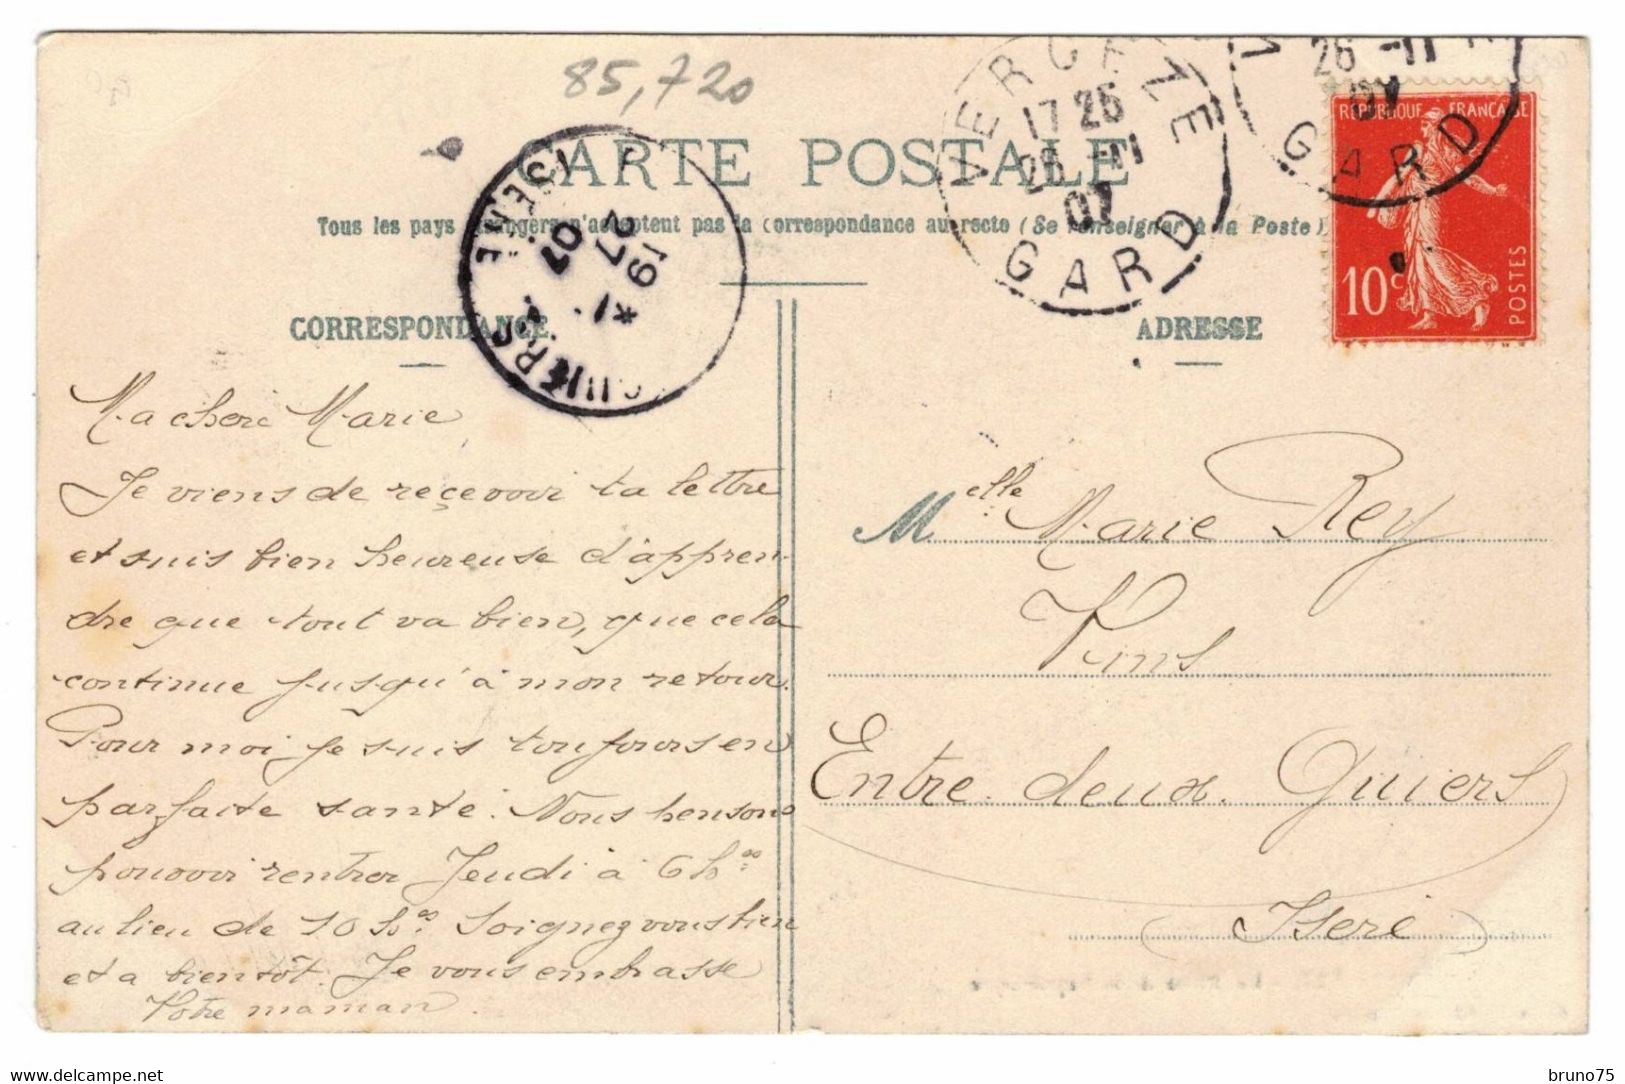 85,720
CARTE POSTALE
Tous les pays étrangers n'acceptent pas la correspondance au recto (Se renseigner à la Poste)
CORRESPONDANCE.
ADRESSE
VERGEZE
17 25
26 -11
07
GARD
26 -11
07
GARD
ISERE
19
27
07
REPUBLIQUE FRANÇAISE
10c
POSTES
Ma cheré Marie
Je viens de reçevoir ta lettre
et suis bien heureuse d'appren-
dre que tout va bien, que cela
continue jusqu'à mon retour.
Pour moi je suis toujours en
parfaite santé. Nous pensons
pouvoir rentrer Jeudi à 6 hes
au lieu de 10 hes. Soignez vous bien
et a bientôt. Je vous embrasse
Votre maman.
Melle Marie Rey
Entre. deux. Guiers
(Iseré)
bruno75